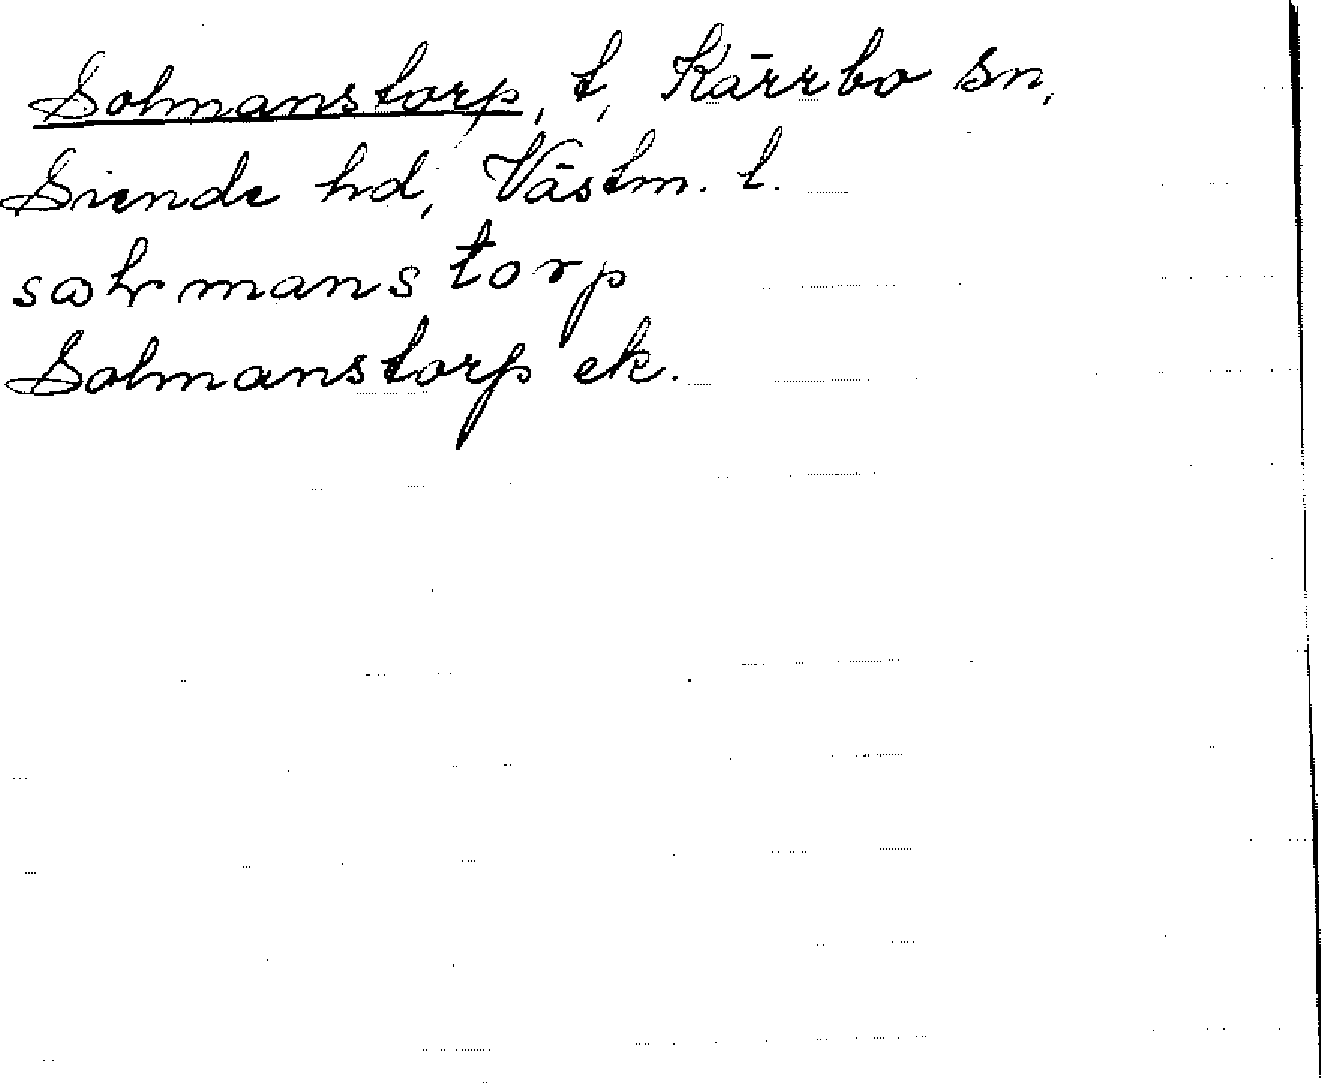 Solmanstorp, t, Kärrbo sn,
Siende hd, Västm. l.
solmanstorp
Solmanstorp ek.